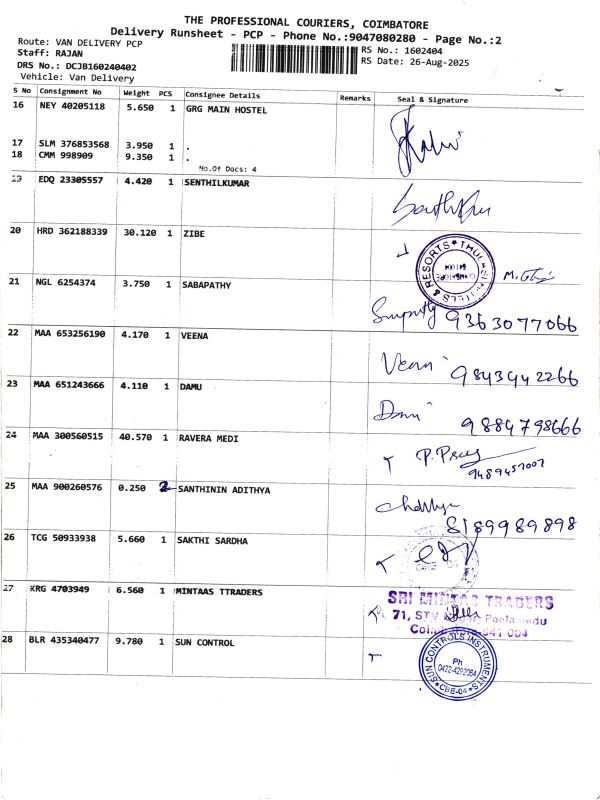 THE PROFESSIONAL COURIERS, COIMBATORE
Delivery Runsheet - PCP - Phone No.:9047080280 - Page No.:2
Route: VAN DELIVERY PCP
RS No.: 1602404
Staff: RAJAN
RS Date: 26-Aug-2025
DRS No.: DCJB160240402
Vehicle: Van Delivery
S No Consignment No Weight PCS Consignee Details Remarks Seal & Signature
16 NEY 40205118 5.650 1 GRG MAIN HOSTEL
17 SLM 376853568 3.950 1 .
18 CMM 998909 9.350 1 .
No.Of Docs: 4
19 EDQ 23305557 4.420 1 SENTHILKUMAR
20 HRD 362188339 30.120 1 ZIBE
THULASI HOTELS & RESORTS
21 NGL 6254374 3.750 1 SABAPATHY
9363077066
22 MAA 653256190 4.170 1 VEENA
Veena 9843442266
23 MAA 651243666 4.110 1 DAMU
9884798666
24 MAA 300560515 40.570 1 RAVERA MEDI
9489457007
25 MAA 900260576 0.250 2 SANTHININ ADITHYA
8189989898
26 TCG 50933938 5.660 1 SAKTHI SARDHA
27 KRG 4703949 6.560 1 MINTAAS TTRADERS
SRI MINTAS TRADERS
71, STV Nagar, Peelamedu
Coimbatore 641 004
28 BLR 435340477 9.780 1 SUN CONTROL
SUN CONTROLS INSTRUMENTS
Ph
0422-4292084
CBE-04